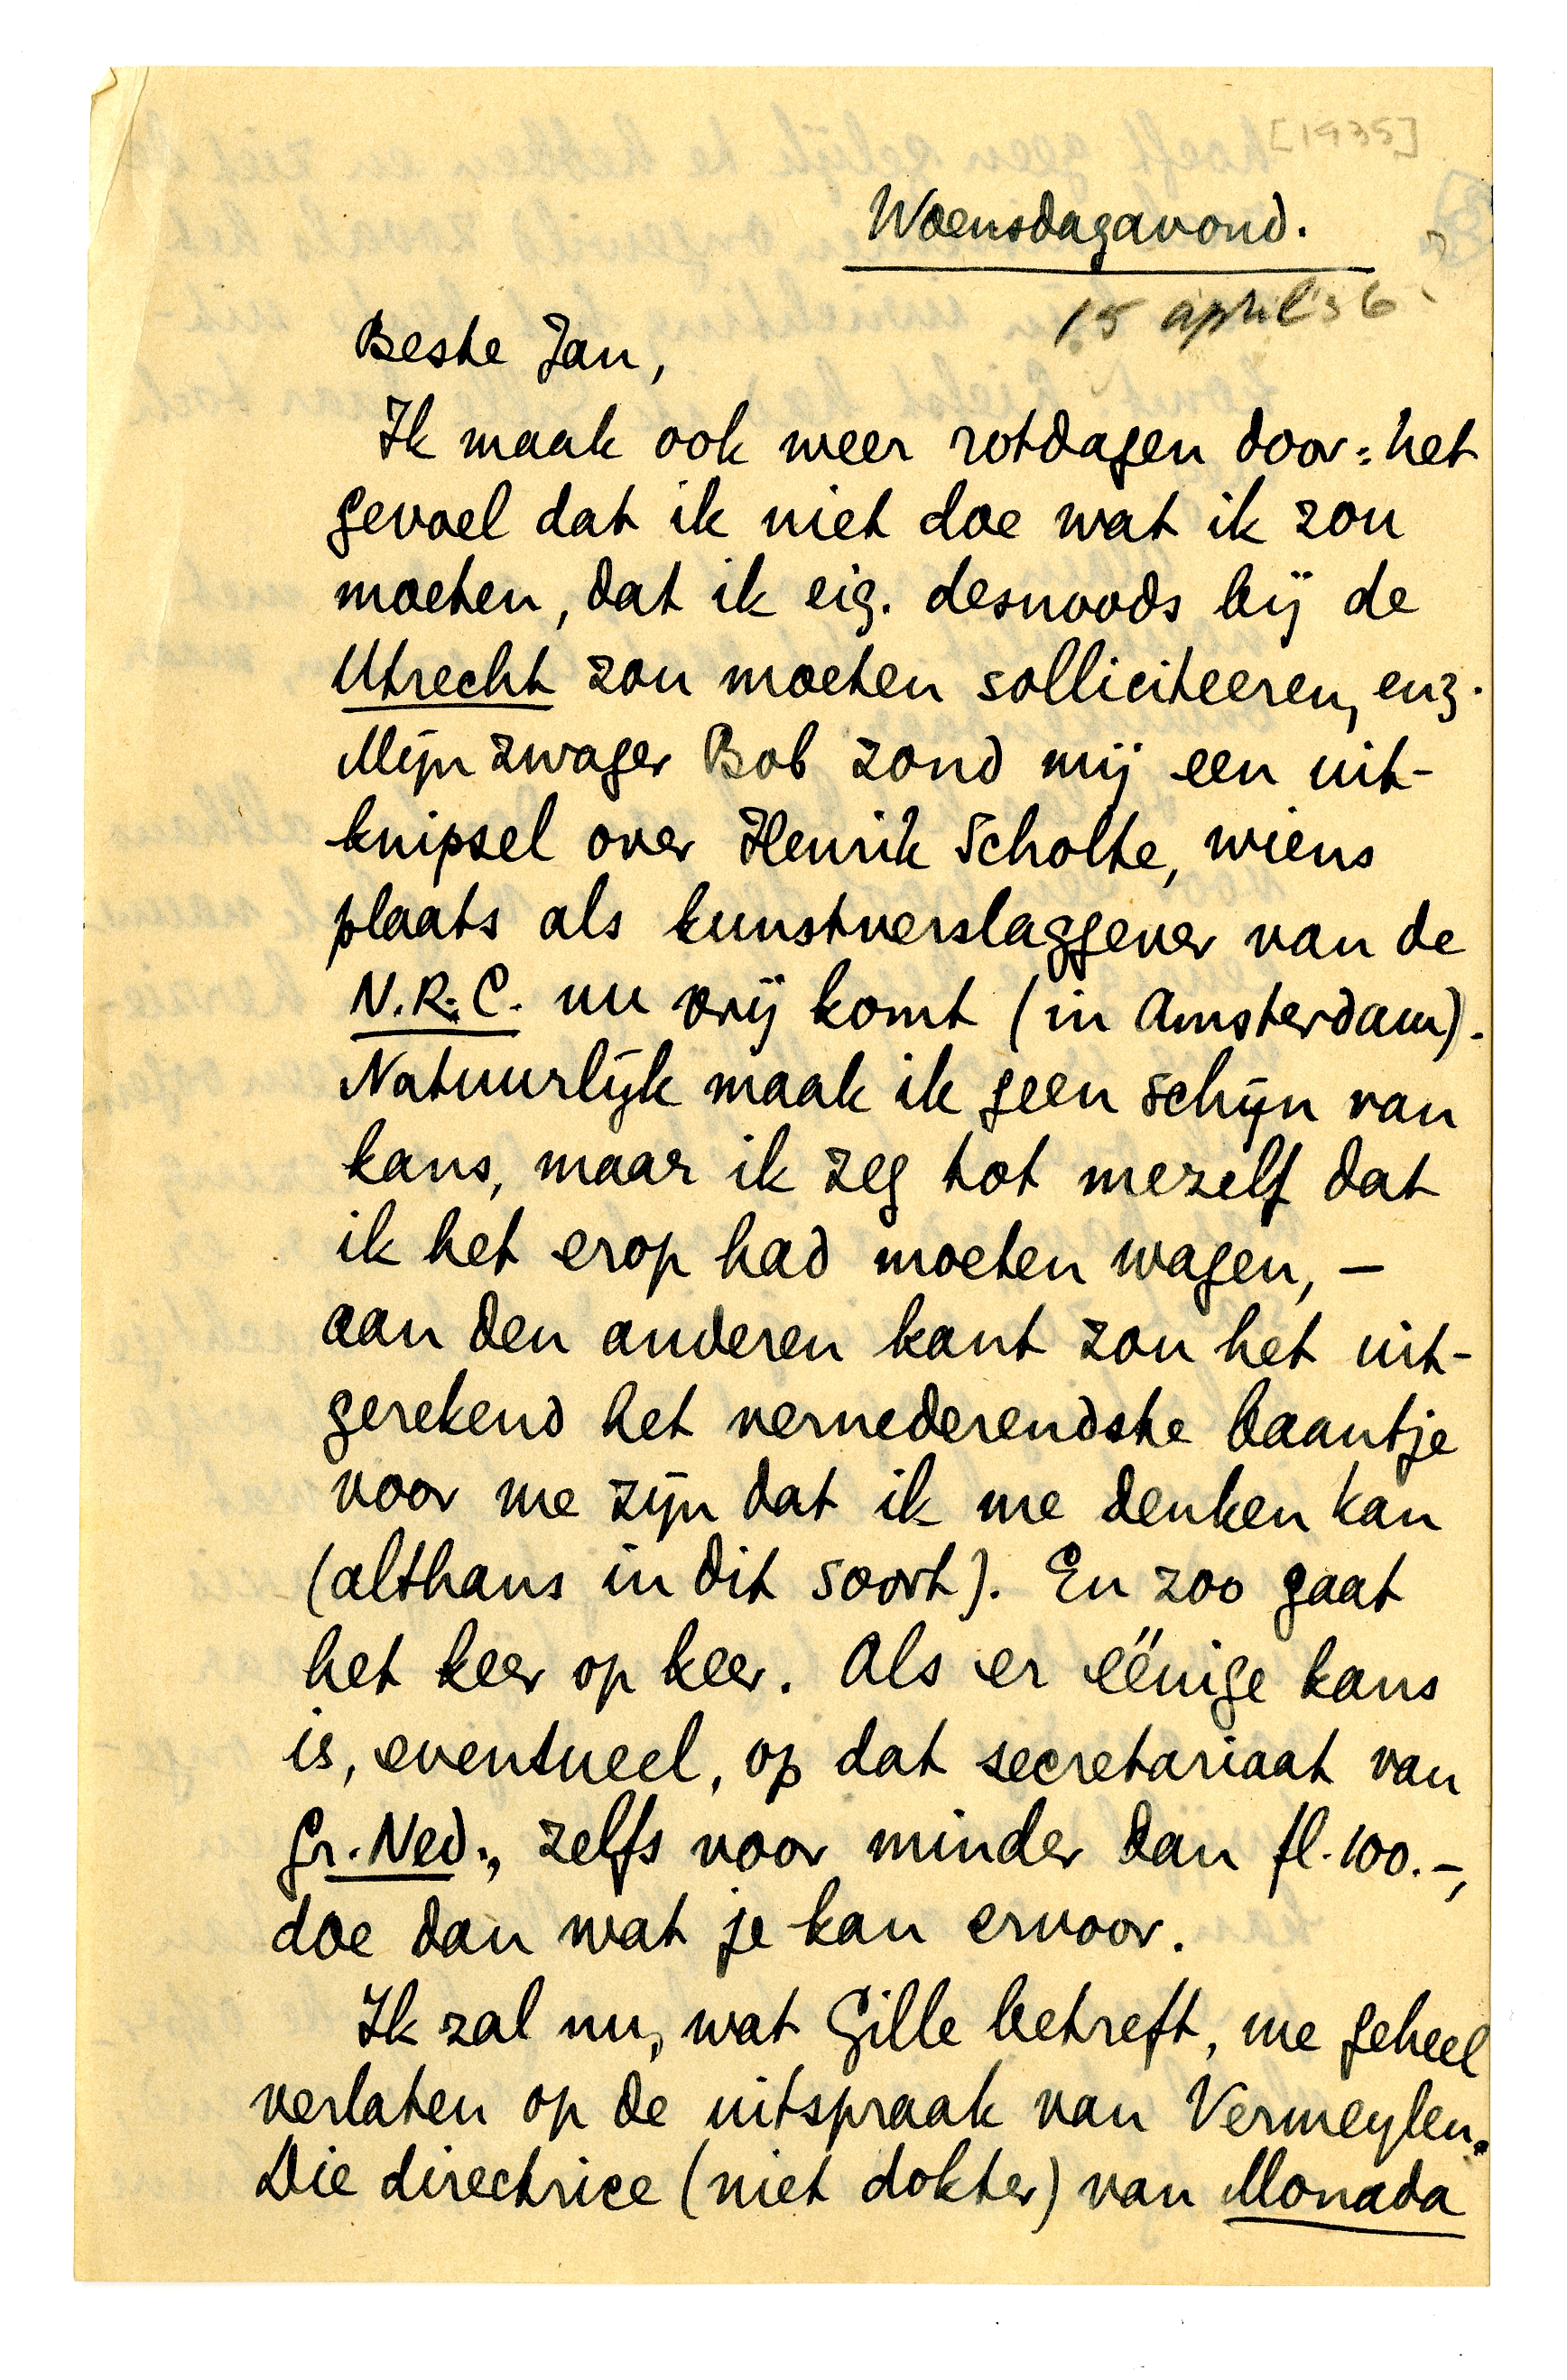 [1935]
Woensdagavond.
15 april '36?
Beste Jan,
Ik maak ook weer rotdagen door: het
gevoel dat ik niet doe wat ik zou
moeten, dat ik eig. desnoods bij de
Utrecht zou moeten solliciteeren, enz.
Mijn zwager Bob zond mij een uit-
knipsel over Henrik Scholte, wiens
plaats als kunstverslaggever van de
N.R.C. nu vrij komt (in Amsterdam).
Natuurlijk maak ik geen schijn van
kans, maar ik zeg tot mezelf dat
ik het erop had moeten wagen, —
aan den anderen kant zou het uit-
gerekend het vernederendste baantje
voor me zijn dat ik me denken kan
(althans in dit soort). En zoo gaat
het keer op keer. Als er eënige kans
is, eventueel, op dat secretariaat van
Gr. Ned., zelfs voor minder dan fl. 100.-,
doe dan wat je kan ervoor.
Ik zal nu, wat Gille betreft, me geheel
verlaten op de uitspraak van Vermeylen.
Die directrice (niet dokter) van Monada